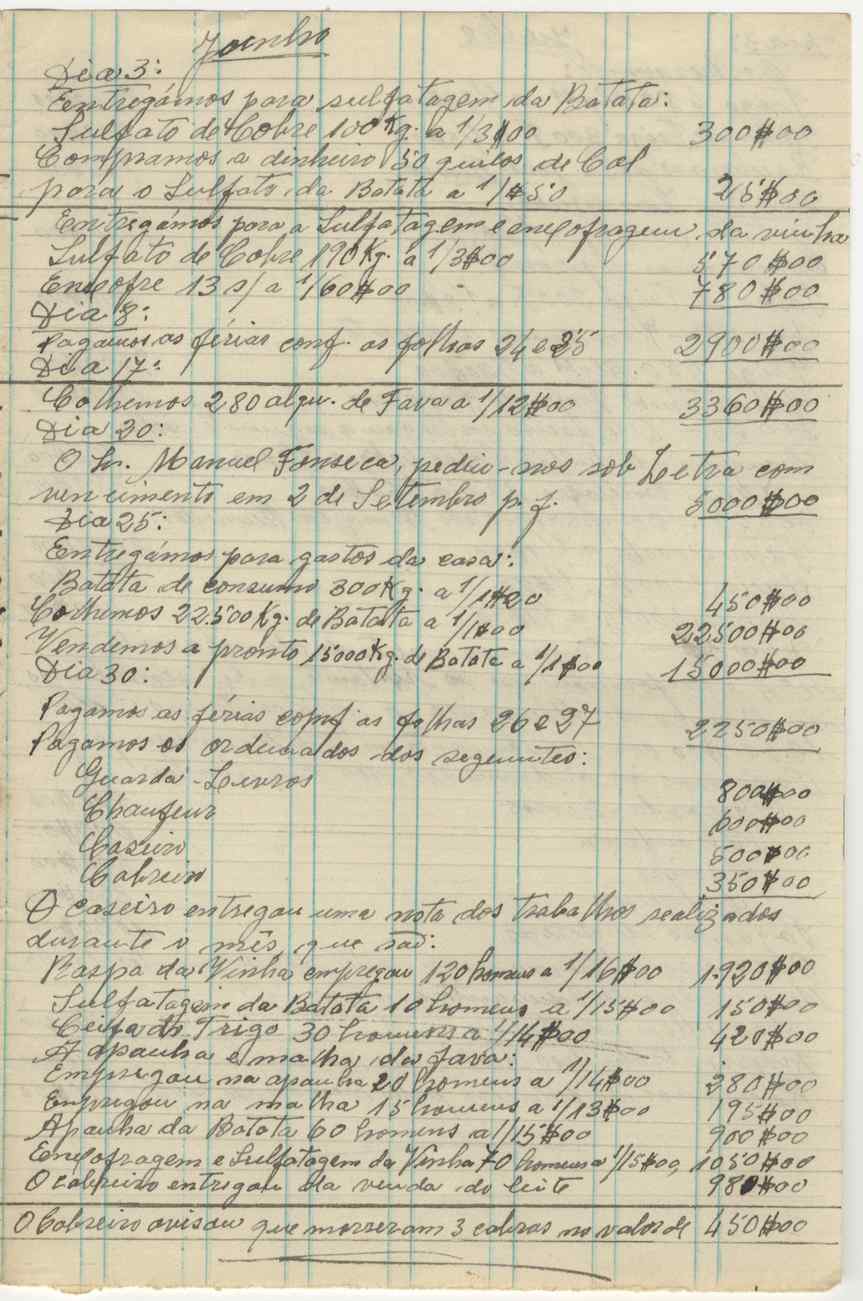 Junho
Dia 3:
Entregámos para sulfatagem da Batata:
Sulfato de Cobre 100 Kg. a 1/3$00 300$00
Compramos a dinheiro 50 quilos de Cal
para o Sulfato da Batata a 1/$50 25$00
Entregámos para a Sulfatagem e enxofragem da vinha
Sulfato de Cobre 190 Kg. a 1/3$00 570$00
Enxofre 13 s/ a 1/60$00 780$00
Dia 8:
Pagamos as férias conf. as folhas 24 e 25 2900$00
Dia 17:
Colhemos 280 alqu. de Fava a 1/12$00 3360$00
Dia 20:
O Sr. Manuel Fonseca, pediu-nos sob Letra com
vencimento em 2 de Setembro p. f. 5000$00
Dia 25:
Entregámos para gastos da casa:
Batata de consumo 300 Kg. a 1/1$20 450$00
Colhemos 22.500 Kg. de Batata a 1/1$00 22500$00
Vendemos a pronto 15000 Kg. de Batata a 1/1$00 15000$00
Dia 30:
Pagamos as férias conf as folhas 26 e 27 2250$00
Pagamos os ordenados dos seguintes:
Guarda-Livros 800$00
Chaufeur 600$00
Caseiro 500$00
Cabreiro 350$00
O caseiro entregou uma nota dos trabalhos realizados
durante o mês que são:
Raspa da Vinha empregou 120 homens a 1/16$00 1.920$00
Sulfatagem da Batata 10 homens a 1/15$00 150$00
Ceifa do Trigo 30 homens a 1/14$00 420$00
A apanha e malha da fava:
Empregou na apanha 20 homens a 1/14$00 280$00
Empregou na malha 15 homens a 1/13$00 195$00
Apanha da Batata 60 homens a 1/15$00 900$00
Enxofragem e Sulfatagem da Vinha 70 homens a 1/15$00, 1050$00
O cabreiro entregou da venda do leite 980$00
O Cabreiro avisou que morreram 3 cabras no valor de 450$00